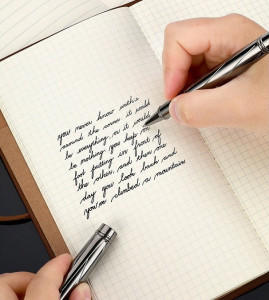 you never know what's
around the corner. it could
be everything. or it could
be nothing. you keep
foot putting in front of
the other, and then one
day you look back and
you've climbed a mountain